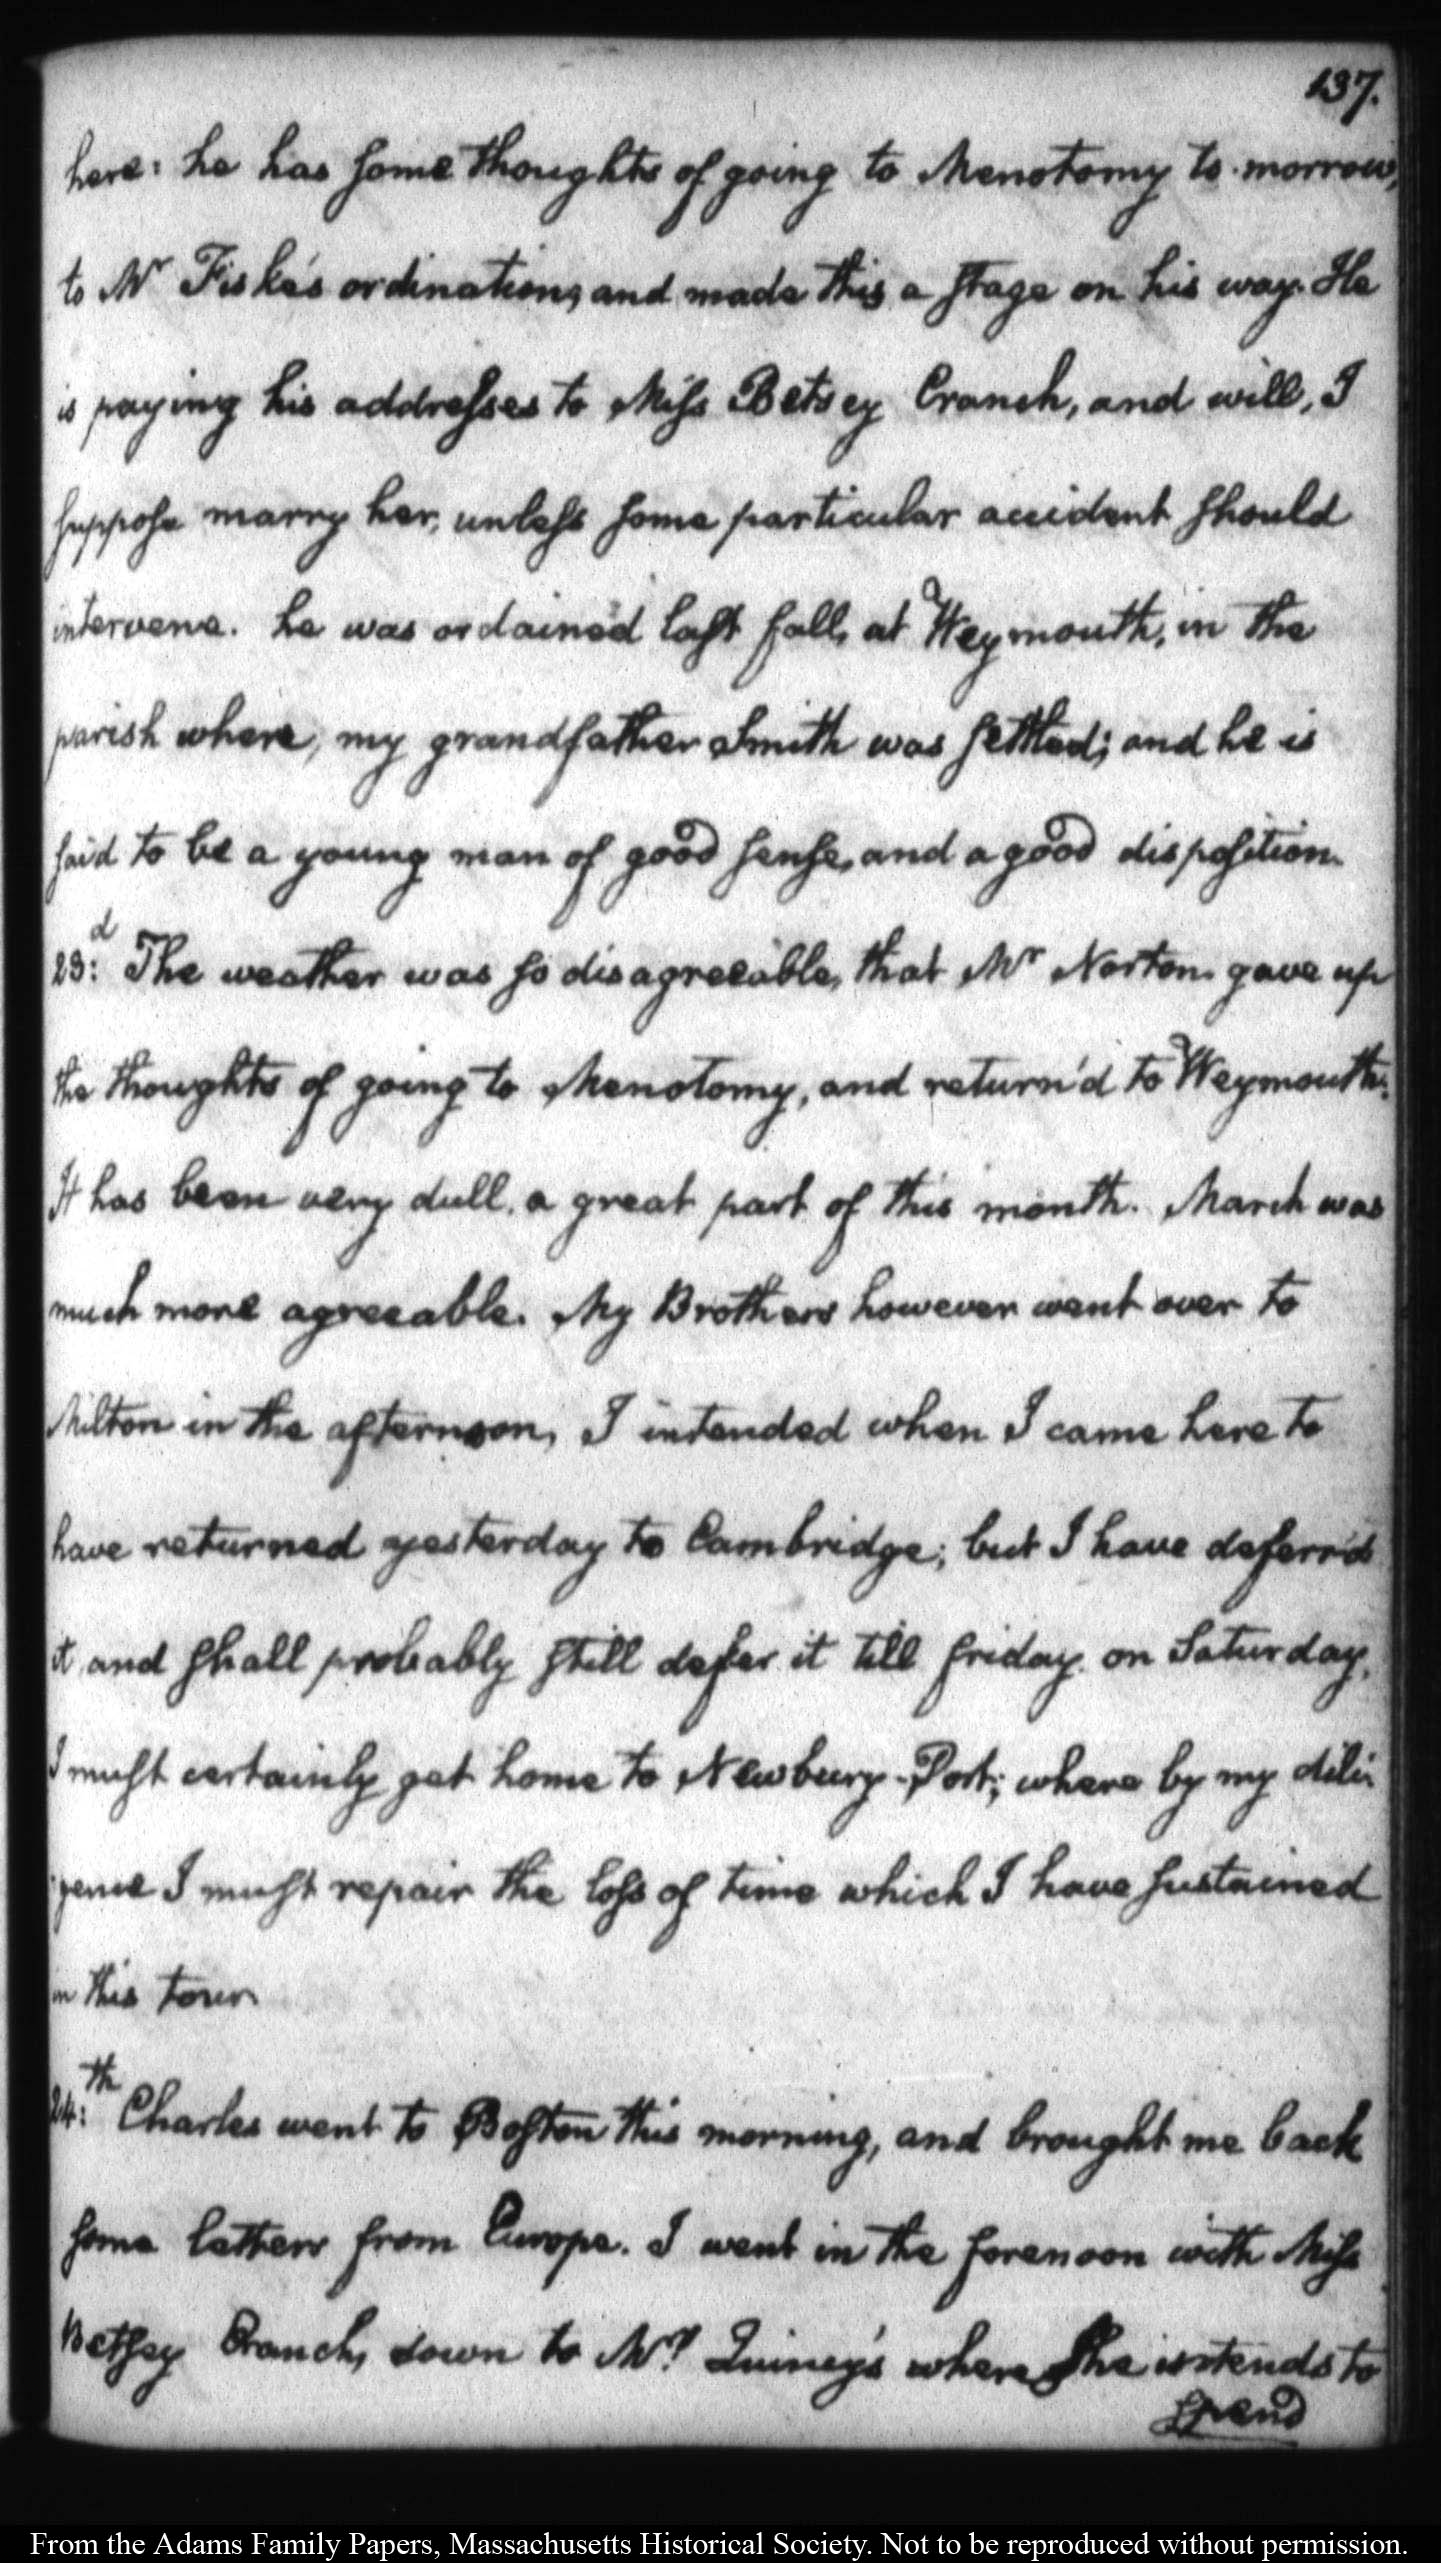 137.
here: he has some thoughts of going to Menotomy to-morrow,
to Mr Fiske's ordination, and made this a stage on his way. He
is paying his addresses to Miss Betsey Cranch, and will, I
suppose marry her, unless some particular accident should
intervene. he was ordained last fall, at Weymouth, in the
parish where, my grandfather Smith was settled; and he is
said to be a young man of good sense, and a good disposition.
23:d The weather was so disagreeable, that Mr Norton gave up
the thoughts of going to Menotomy, and return'd to Weymouth.
It has been very dull, a great part of this month. March was
much more agreeable. My Brothers however went over to
Milton in the afternoon, I intended when I came here to
have returned yesterday to Cambridge; but I have deferr'd
it and shall probably still defer it till friday. on Saturday,
I must certainly get home to Newbury-Port; where by my dili-
gence I must repair the loss of time which I have sustained
in this tour
24:th Charles went to Boston this morning, and brought me back
some letters from Europe. I went in the forenoon with Miss
Betsey Cranch, down to Mrs Quincy's where She intends to
spend
From the Adams Family Papers, Massachusetts Historical Society. Not to be reproduced without permission.